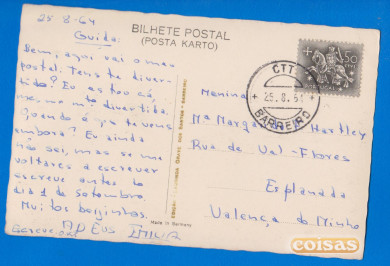 25-8-64
Guida:
Bem, aqui vai o meu
postal. Tens-te diver-
tido? Eu estou cá,
me, no m/to divertida.
Quando é q te vens
embora? Eu ainda
não sei, mas se me
voltares a escrever
escreve antes do
dia 1 de Setembro.
Muitos beijinhos.
ADEUS EMILIA
BILHETE POSTAL
(POSTA KARTO)
Made in Germany
CTT
25.8.64
BARREIRO
50
Menina
Mª Hartley
Rua de Val-Flores
Esplanada
Valença do Minho
coisas